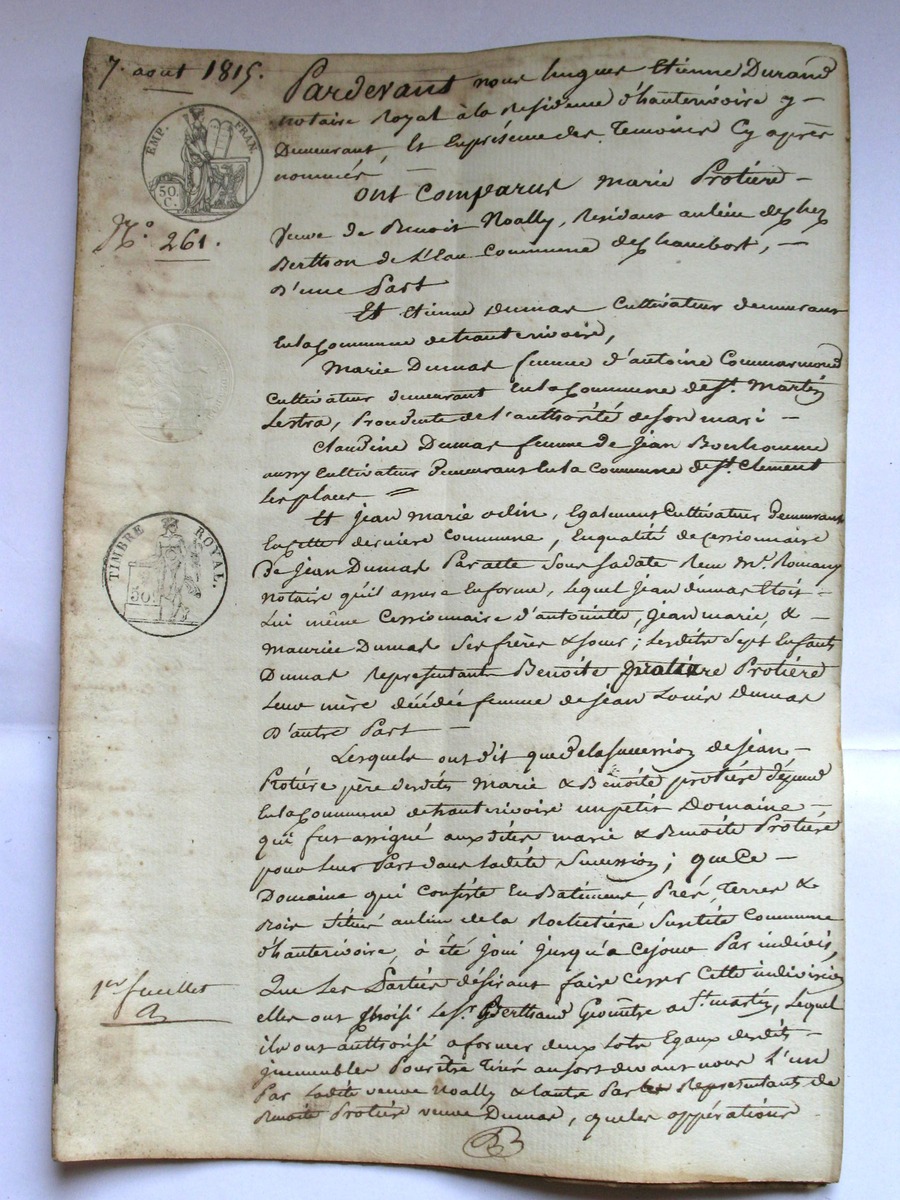 7. aout 1815.
EMP. FRAN.
50. C.
N.o 261.
TIMBRE ROYAL.
50.
1er feuillet
Pardevant nous hugues Etienne Durand
notaire Royal à la Residence d'hauterivoire y
Demeurant, et Enprésence des Temoins Cy après
nommés, —
ont comparus marie Protière —
Veuve de Benoit Noally, Residant aulieu dechez
Berthon de L'Eau Commune de Chambost, —
D'une Part
Et Etienne Dumas Cultivateur demeurant
En la Commune dehauterivoire,
Marie Dumas femme d'antoine Commarmond
Cultivateur demeurant En la Commune de St. Martin
Lestra, Procédente de l'authorité deson mari —
Claudine Dumas femme de Jean Bonhomme
aussy Cultivateur Demeurant En la Commune de St. Clement
Les places =
Et jean marie odin, Egalement Cultivateur Demeurant
En cette derniere Commune, Enqualité de Cessionnaire
De Jean Dumas Par acte sous sadate Reçu Me. Romany
notaire qu'il assure En forme, lequel jean dumas Etoit —
Lui même Cessionnaire d'antoinette, Jean marie, & —
Maurice Dumas ses frères & sœur; lesdits sept Enfants
Dumas représentants Benoite Protière
Leur mère décédée femme de jean Louis Dumas
D'autre Part —
Lesquels ont dit que dela succession de jean —
Protière père desdites marie & Benoite protière dépend
En la Commune dehauterivoire un petit Domaine —
qui fut assigné auxdites marie & Benoite Protière
pour leur Part dans ladite succession; que Ce —
Domaine qui Consiste En Batiments, Prés, Terres &
Bois situé aulieu de la Rochetière susdite Commune
d'hauterivoire, à été joui jusqu'a Cejour Par indivis,
Que Les Parties désirant faire Cesser Cette indivision
elles ont choisi le Sr. Berthaud Géomêtre a St. martin, Lequel
ils ont authorisé a former deux Lots Egaux desdits —
immeubles Pour être Tiré au sort devant nous L'un
Par Ladite veuve Noally & l'autre Par les Représentants de
Benoite Protière veuve Dumas, queles oppérations